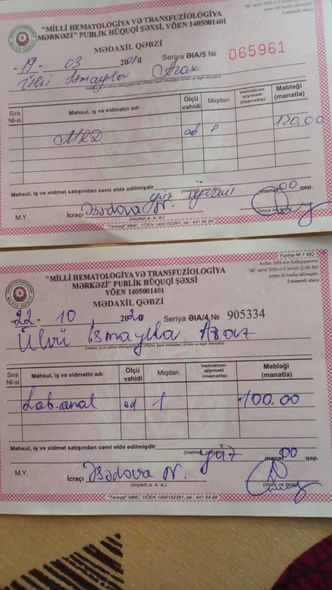 "MİLLİ HEMATOLOGİYA VƏ TRANSFUZİOLOGİYA
MƏRKƏZİ" PUBLİK HÜQUQİ ŞƏXSİ, VÖEN 1405001401
MƏDAXİL QƏBZİ
19 03 Seriya ƏİA/5 № 065961
Sıra №-si Məhsul, iş və xidmətin adı Ölçü vahidi Miqdarı Vahidinin qiyməti (manatla) Məbləği (manatla)
MRD əd 120,00
Məhsul, iş və xidmət satışından cəmi əldə edilmişdir
yüz iyirmi manat 00 qəp.
M.Y. İcraçı Əsədova N.
(soyadı, a. a.)
Forma № 1 MQ
"MİLLİ HEMATOLOGİYA VƏ TRANSFUZİOLOGİYA
MƏRKƏZİ" PUBLİK HÜQUQİ ŞƏXSİ
VÖEN 1405001401
MƏDAXİL QƏBZİ
22 10 2020 Seriya ƏİA/4 № 905334
Ülvü İsmayılla Araz
Sıra №-si Məhsul, iş və xidmətin adı Ölçü vahidi Miqdarı Vahidinin qiyməti (manatla) Məbləği (manatla)
Lab-anal əd 1 100.00
Məhsul, iş və xidmət satışından cəmi əldə edilmişdir
yüz manat 00 qəp.
M.Y. İcraçı Əsədova N.
(soyadı, a. a.)